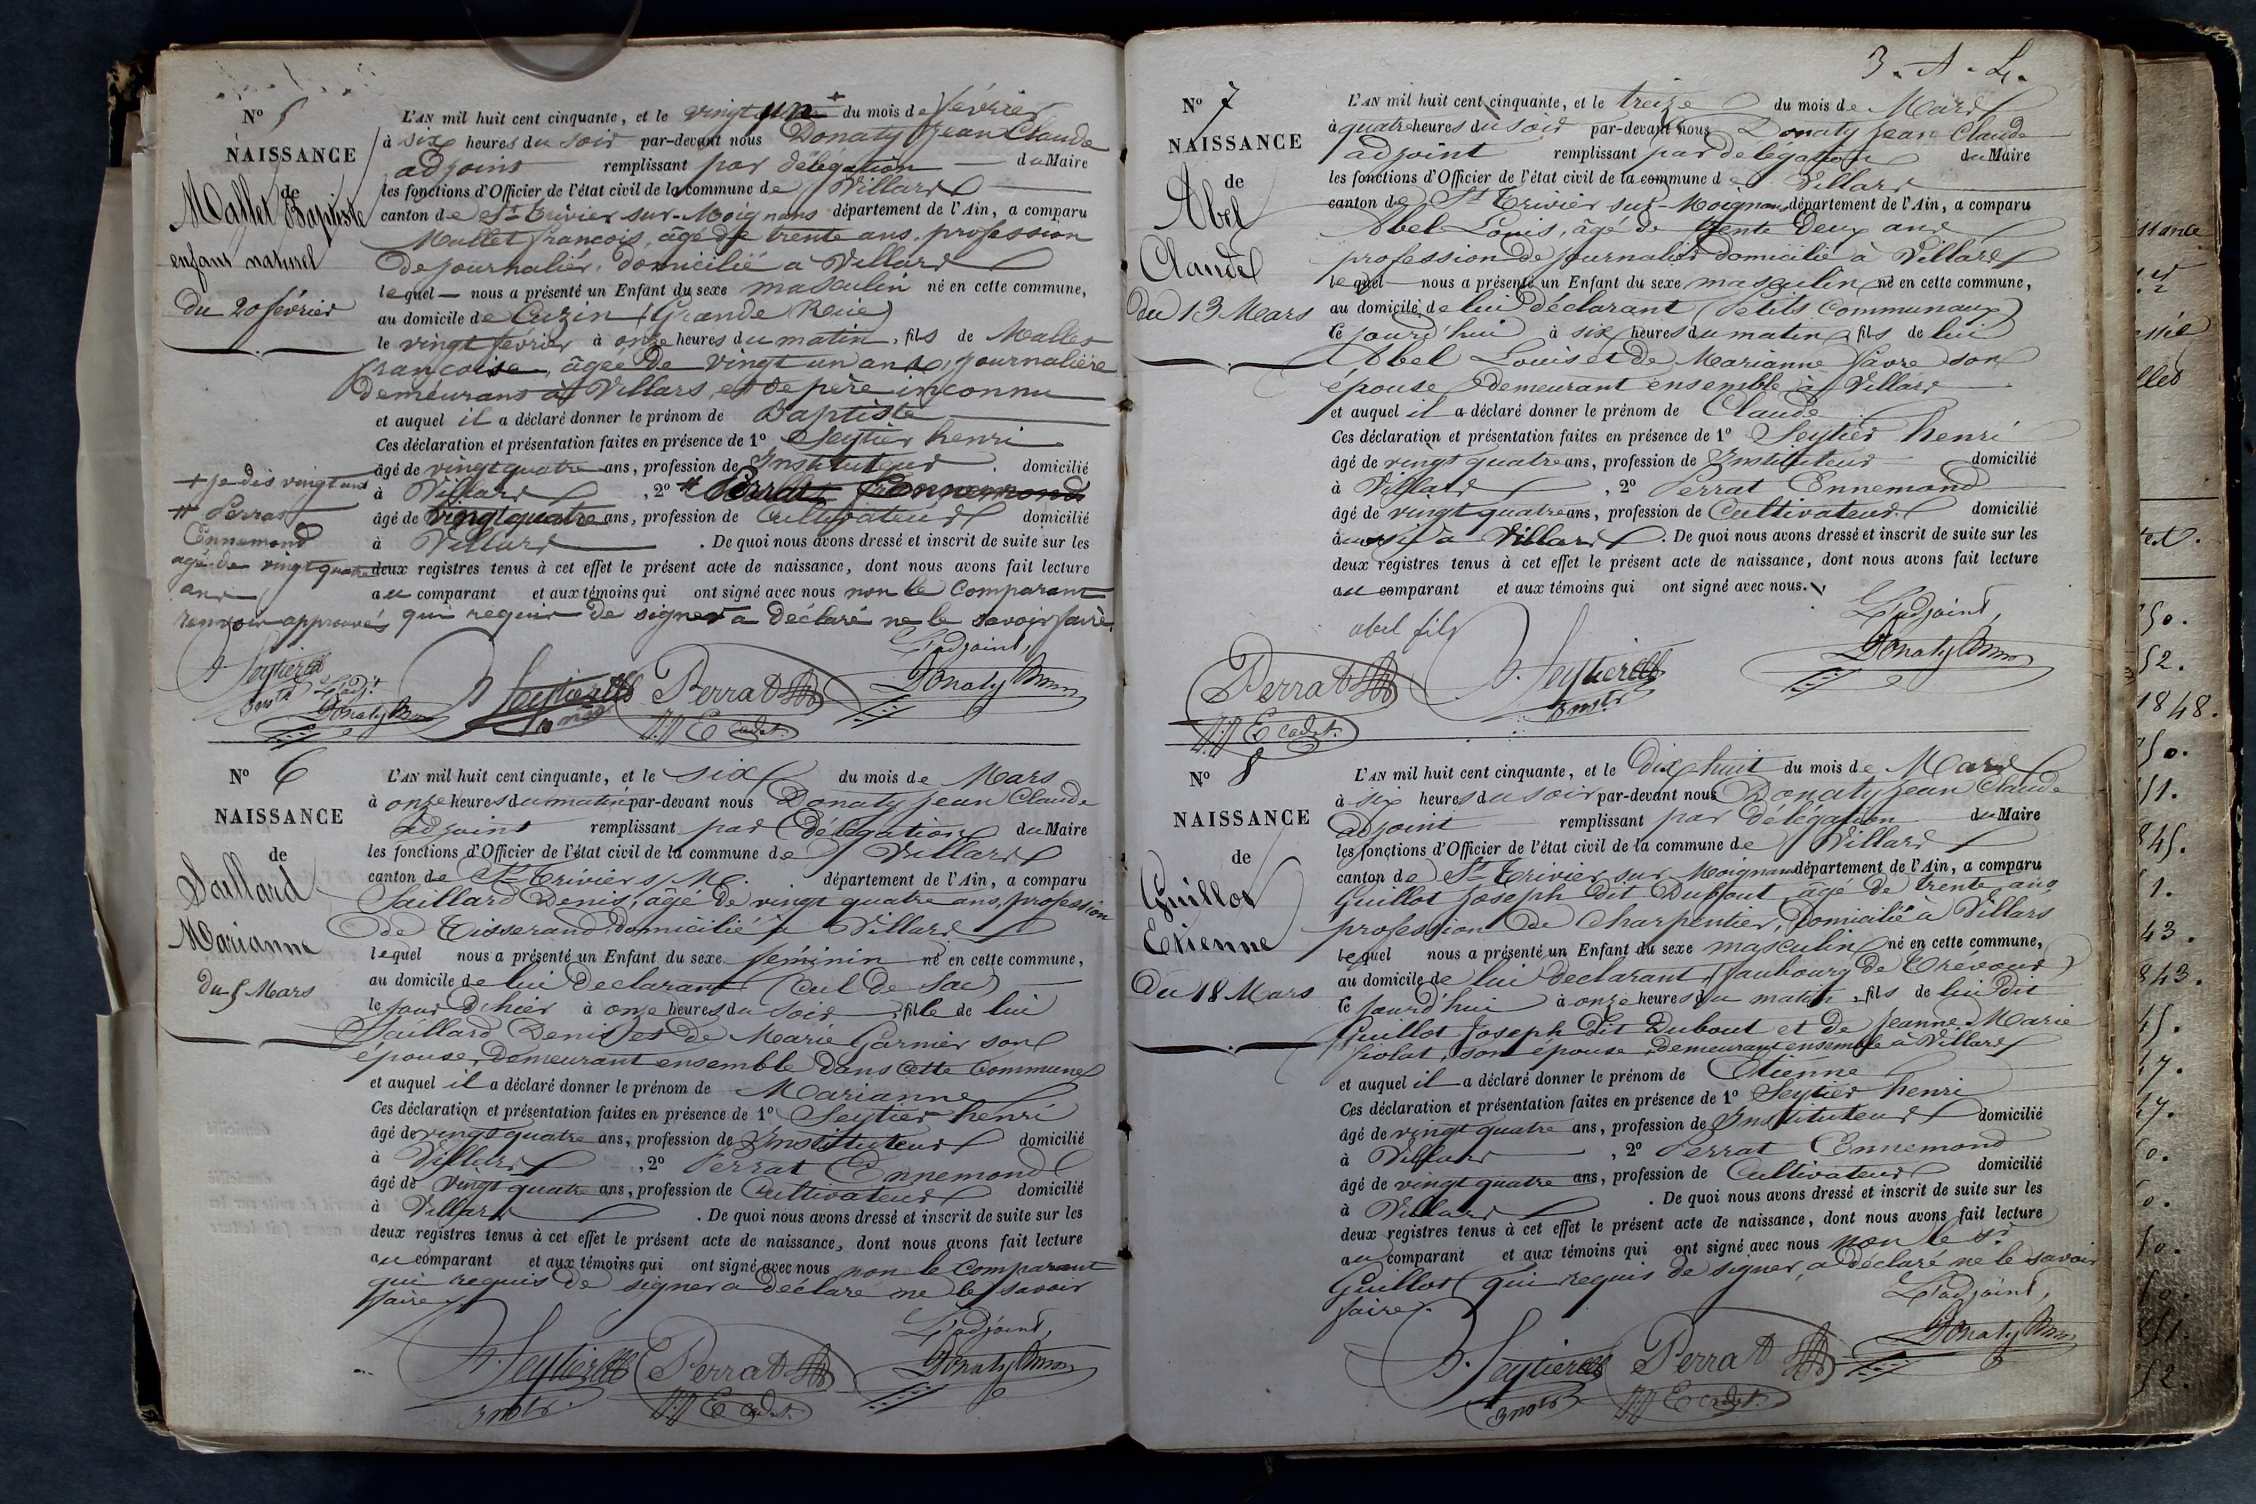 N° 5
NAISSANCE
de
Mallet Baptiste
enfant naturel
du 20 février
L'AN mil huit cent cinquante, et le vingt un + du mois de février
à six heures du soir par-devant nous Donaty Jean Claude
adjoint remplissant par délégation du Maire
les fonctions d'Officier de l'état civil de la commune de Villars
canton de St Trivier sur Moignans département de l'Ain, a comparu
Mallet francois, âgé de trente ans, profession
de journalier, domicilié à Villars
lequel nous a présenté un Enfant du sexe masculin né en cette commune,
au domicile de Cuzin (Grande Reue)
le vingt février à onze heures du matin, fils de Mallet
francoise, âgée de vingt un ans, journalière
demeurant à Villars, et de père inconnu
et auquel il a déclaré donner le prénom de Baptiste
Ces déclaration et présentation faites en présence de 1° Seytier henri
âgé de vingt quatre ans, profession de Instituteur, domicilié
à Villars, 2° # Perrat Ennemond
âgé de vingt quatre ans, profession de Cultivateur domicilié
à Villars. De quoi nous avons dressé et inscrit de suite sur les
deux registres tenus à cet effet le présent acte de naissance, dont nous avons fait lecture
au comparant et aux témoins qui ont signé avec nous non le Comparant
qui requis de signer a déclaré ne le savoir faire.
+ je dis vingt un
# Perrat
Ennemond
agé de vingt quatre
ans
renvoir approuvés
L'adjoint,
H. Seytier
Instr
L'adjt
Donaty
H. Seytier
Perrat
Donaty
E cadet.
N° 6
NAISSANCE
de
Saillard
Marianne
du 5 Mars
L'AN mil huit cent cinquante, et le six du mois de Mars
à onze heures du matin par-devant nous Donaty Jean Claude
adjoint remplissant par délégation du Maire
les fonctions d'Officier de l'état civil de la commune de Villars
canton de St Trivier s/ M. département de l'Ain, a comparu
Saillard Denis, âgé de vingt quatre ans, profession
de Tisserand domicilié à Villars
lequel nous a présenté un Enfant du sexe féminin né en cette commune,
au domicile de lui Déclarant (Cul de Sac)
le jour d'hier à onze heures du soir, fille de lui
Saillard Denis et de Marie Garnier son
épouse, demeurant ensemble dans cette Commune
et auquel il a déclaré donner le prénom de Marianne
Ces déclaration et présentation faites en présence de 1° Seytier henri
âgé de vingt quatre ans, profession de Instituteur domicilié
à Villars, 2° Perrat Ennemond
âgé de vingt quatre ans, profession de Cultivateur domicilié
à Villars. De quoi nous avons dressé et inscrit de suite sur les
deux registres tenus à cet effet le présent acte de naissance, dont nous avons fait lecture
au comparant et aux témoins qui ont signé avec nous non le Comparant
qui requis de signer a déclaré ne le savoir
faire
L'adjoint,
H. Seytier
Perrat
Donaty
Instr.
E cadet.
3. A. L.
N° 7
NAISSANCE
de
Abel
Claude
du 13 Mars
L'AN mil huit cent cinquante, et le treize du mois de Mars
à quatre heures du soir par-devant nous Donaty Jean Claude
adjoint remplissant par délégation du Maire
les fonctions d'Officier de l'état civil de la commune de Villars
canton de St Trivier sur Moignans département de l'Ain, a comparu
Abel Louis, âgé de trente deux ans
profession de journalier domicilié à Villars
lequel nous a présenté un Enfant du sexe masculin né en cette commune,
au domicile de lui déclarant (Petits Communaux)
ce jourd'hui à six heures du matin, fils de lui
Abel Louis et de Marianne favre son
épouse demeurant ensemble à Villars
et auquel il a déclaré donner le prénom de Claude
Ces déclaration et présentation faites en présence de 1° Seytier henri
âgé de vingt quatre ans, profession de Instituteur domicilié
à Villars, 2° Perrat Ennemond
âgé de vingt quatre ans, profession de Cultivateur domicilié
aussi à Villars. De quoi nous avons dressé et inscrit de suite sur les
deux registres tenus à cet effet le présent acte de naissance, dont nous avons fait lecture
au comparant et aux témoins qui ont signé avec nous.
L'adjoint,
abel fils
Perrat
H. Seytier
Donaty
Instr
E cadet.
N° 8
NAISSANCE
de
Guillot
Etienne
Du 18 Mars
L'AN mil huit cent cinquante, et le Dix huit du mois de Mars
à six heures du soir par-devant nous Donaty Jean Claude
adjoint remplissant par délégation du Maire
les fonctions d'Officier de l'état civil de la commune de Villars
canton de St Trivier sur Moignans département de l'Ain, a comparu
Guillot Joseph dit Dubout, âgé de trente ans
profession de Charpentier, domicilié à Villars
lequel nous a présenté un Enfant du sexe masculin né en cette commune,
au domicile de lui déclarant (faubourg de Trévoux)
ce jourd'hui à onze heures du matin, fils de lui dit
Guillot Joseph dit Dubout et de Jeanne Marie
Siolat, son épouse, demeurant ensemble à Villars
et auquel il a déclaré donner le prénom de Etienne
Ces déclaration et présentation faites en présence de 1° Seytier henri
âgé de vingt quatre ans, profession de Instituteur domicilié
à Villars, 2° Perrat Ennemond
âgé de vingt quatre ans, profession de Cultivateur domicilié
à Villars. De quoi nous avons dressé et inscrit de suite sur les
deux registres tenus à cet effet le présent acte de naissance, dont nous avons fait lecture
au comparant et aux témoins qui ont signé avec nous non le Sr
Guillot qui requis de signer, a déclaré ne le savoir
faire.
L'adjoint,
H. Seytier
Perrat
Donaty
Instr
E cadet.
ssance
50.
52.
1848.
50.
51.
845.
51.
43.
843.
45.
47.
47.
50.
50.
50.
50.
851.
52.